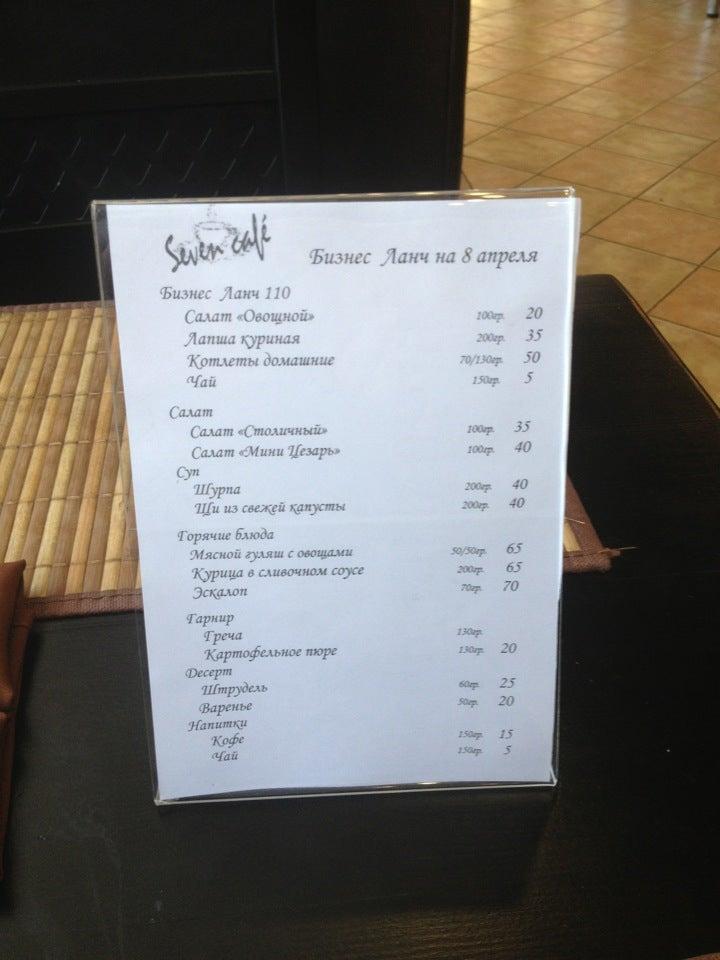 Seven café
Бизнес Ланч на 8 апреля
Бизнес Ланч 110
Салат «Овощной» 100гр. 20
Лапша куриная 200гр. 35
Котлеты домашние 70/130гр. 50
Чай 150гр. 5
Салат
Салат «Столичный» 100гр. 35
Салат «Мини Цезарь» 100гр. 40
Суп
Шурпа 200гр. 40
Щи из свежей капусты 200гр. 40
Горячие блюда
Мясной гуляш с овощами 50/50гр. 65
Курица в сливочном соусе 200гр. 65
Эскалоп 70гр. 70
Гарнир
Греча 130гр.
Картофельное пюре 130гр. 20
Десерт
Штрудель 60гр. 25
Варенье 50гр. 20
Напитки
Кофе 150гр. 15
Чай 150гр. 5